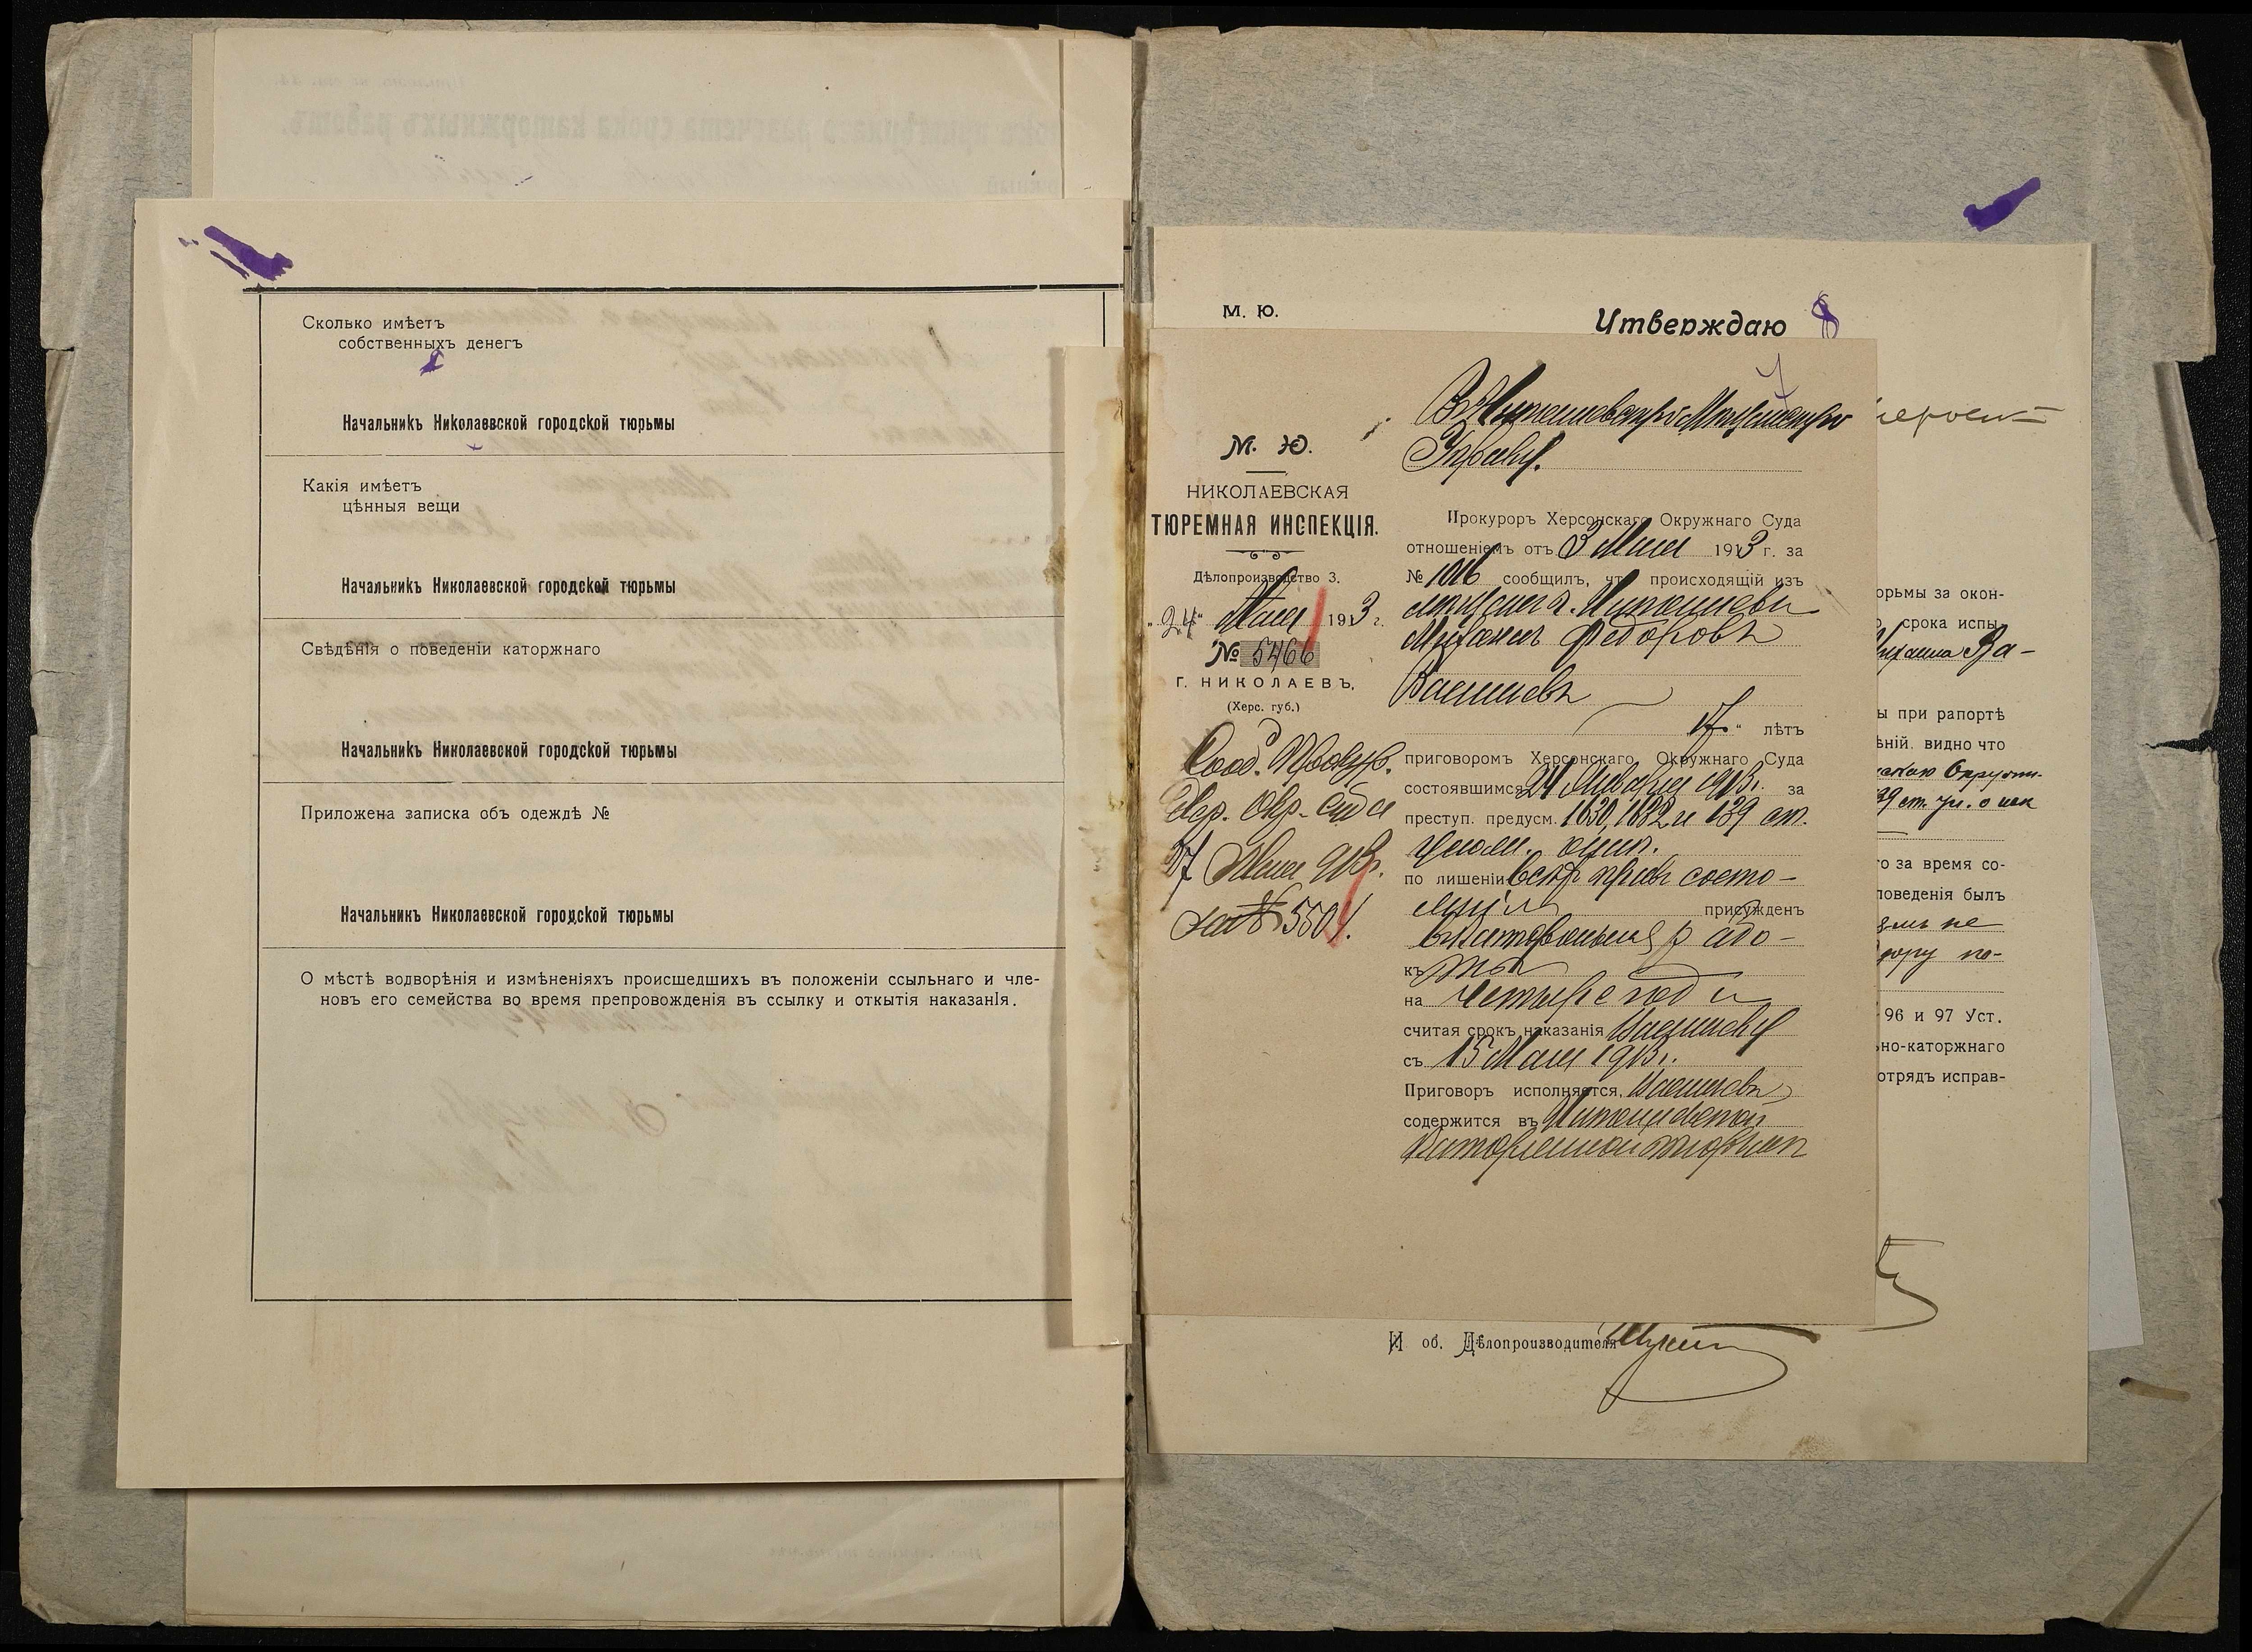 Сколько имѣетъ
собственныхъ денегъ
Начальникъ Николаевской городской тюрьмы
Какія имѣетъ
цѣнныя вещи
Начальникъ Николаевской городской тюрьмы
Свѣдѣнія о поведеніи каторжнаго
Начальникъ Николаевской городской тюрьмы
Приложена записка объ одеждѣ №
Начальникъ Николаевской городской тюрьмы
О мѣстѣ водворѣнія и измѣненіяхъ происшедшихъ въ положеніи ссыльнаго и чле-
новъ его семейства во время препровожденія въ ссылку и открытія наказанія.
М. Ю.
Утверждаю 8
7
Управу.
М. Ю.
НИКОЛАЕВСКАЯ
ТЮРЕМНАЯ ИНСПЕКЦІЯ.
Дѣлопроизводство 3.
"24" Мая 1913 г.
№ 5466
Г. НИКОЛАЕВЪ,
(Херс. губ.)
Сооб. Прокур.
Хер. Окр. Суда
27 Мая 913 г.
за № 5504.
Прокуроръ Херсонскаго Окружнаго Суда
отношеніемъ отъ 3 Мая 1913 г. за
№ 1016 сообщилъ, что происходящій изъ
Михаилъ Федоровъ
17 " лѣтъ
приговоромъ Херсонскаго Окружнаго Суда
состоявшимся 24 Января 1913 г. за
преступ. предусм. 1630, 1632 и 139 ст.
Улож. о нак.
по лишеніи всѣхъ правъ состо-
янія присужденъ
въ каторжныя рабо-
къ ты
на четыре года
считая срокъ наказанія
съ 15 Мая 1913 г.
Приговоръ исполняется,
содержится въ
каторжной тюрьмѣ
орьмы за окон-
срока испы
Михаила Ва-
ы при рапортѣ
ѣній. видно что
39 ст. Ул. о нак
о за время со-
поведенія былъ
не
96 и 97 Уст.
ьно-каторжнаго
отрядъ исправ-
И об. Дѣлопроизводителя